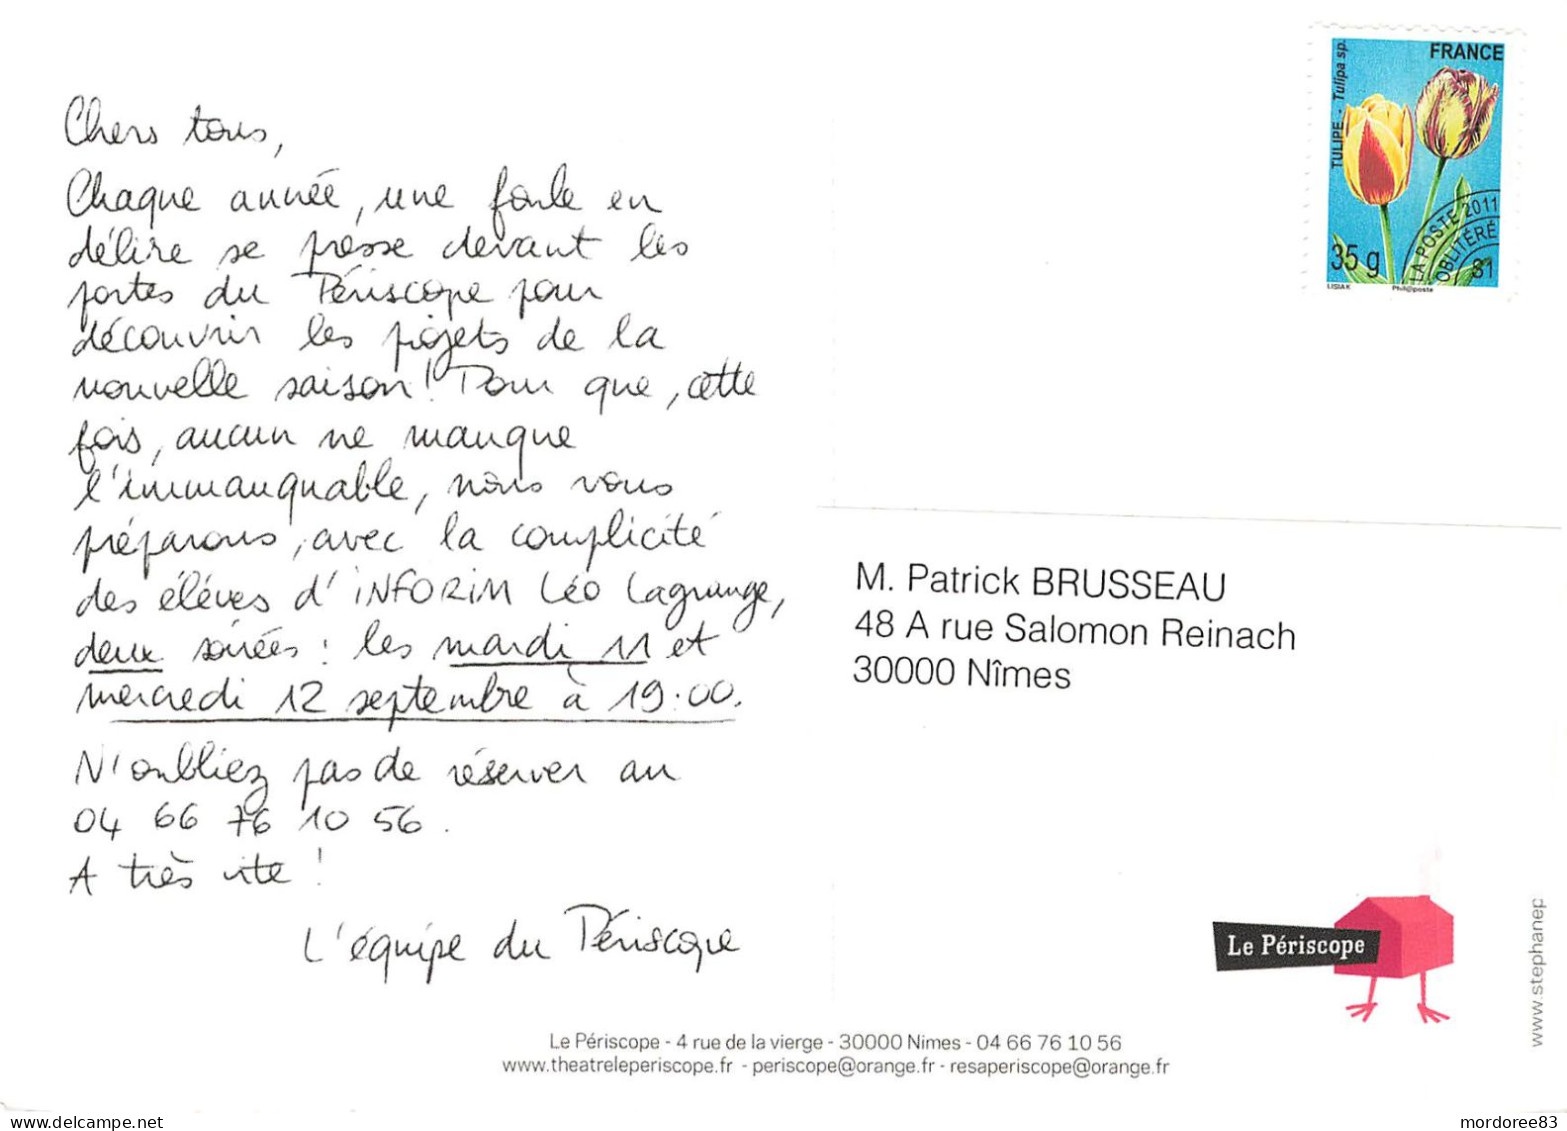 Chers tous,
Chaque année, une foule en
délire se presse devant les
portes du Périscope pour
découvrir les projets de la
nouvelle saison! Pour que, cette
fois, aucun ne manque
l'immanquable, nous vous
préparons, avec la complicité
des élèves d'INFORIM Léo Lagrange,
deux soirées : les mardi 11 et
mercredi 12 septembre à 19:00.
N'oubliez pas de réserver au
04 66 76 10 56.
A très vite !
L'équipe du Périscope
FRANCE
TULIPE - Tulipa sp.
LA POSTE 2011
OBLITÉRÉ
S1
35 g
LISIAK Phil@poste
M. Patrick BRUSSEAU
48 A rue Salomon Reinach
30000 Nîmes
Le Périscope
www.stephanep
Le Périscope - 4 rue de la vierge - 30000 Nimes - 04 66 76 10 56
www.theatreleperiscope.fr - periscope@orange.fr - resaperiscope@orange.fr
delcampe.net
mordoree83